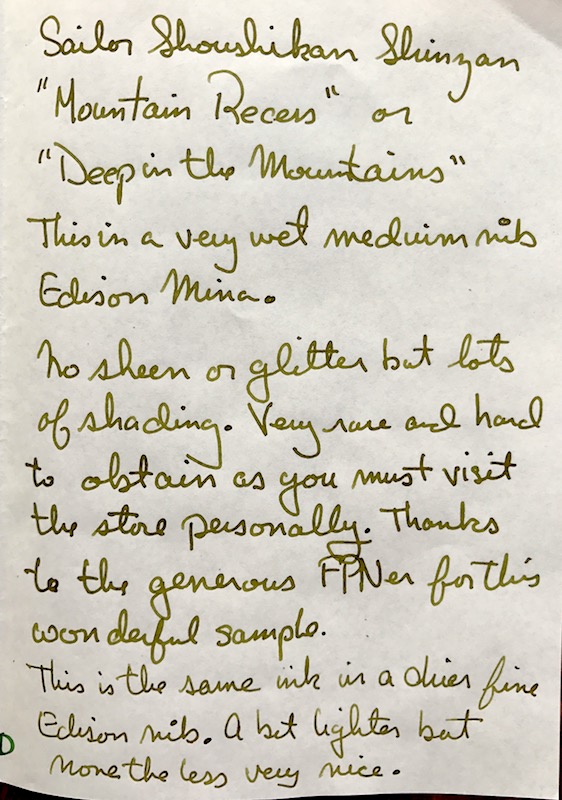 Sailor Shoushikan Shinzan
"Mountain Recess" or
"Deep in the Mountains"
This is a very wet medium nib
Edison Mina.
No sheen or glitter but lots
of shading. Very rare and hard
to obtain as you must visit
the store personally. Thanks
to the generous FPNer for this
wonderful sample.
This is the same ink in a drier fine
Edison nib. A bit lighter but
none the less very nice.